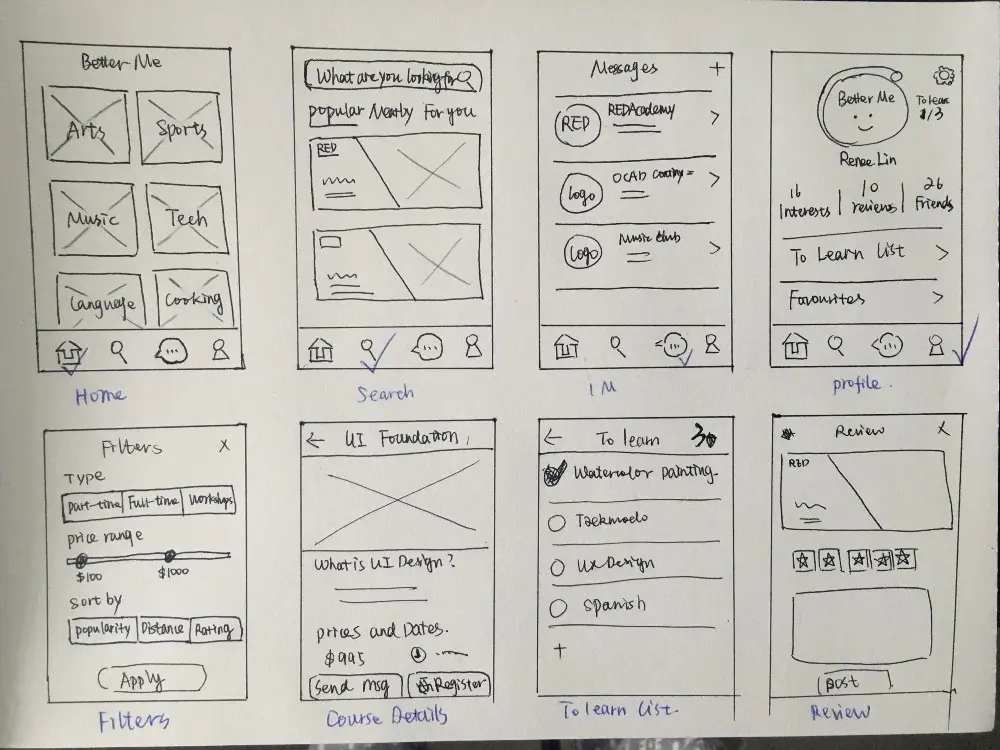 Better Me
Arts
Sports
Music
Tech
Language
Cooking
Home
What are you looking for
Popular Nearby For you
RED
Search
Messages +
RED
REDAcademy
Logo
OCAD
Logo
Music Club
IM
Better Me
To Learn
1/3
Renee Lin
16
Interests
10
reviews
26
Friends
To Learn List
Favourites
profile.
Filters X
Type
Part-time Full-time Workshops
price range
$100 $1000
Sort by
Popularity Distance Rating
Apply
Filters
UI Foundation
What is UI Design?
prices and Dates.
$995
Send Msg Register
Course Details
To learn
Watercolor painting
Taekwodo
UX Design
Spanish
+
To learn List.
Review X
RED
Post
Review